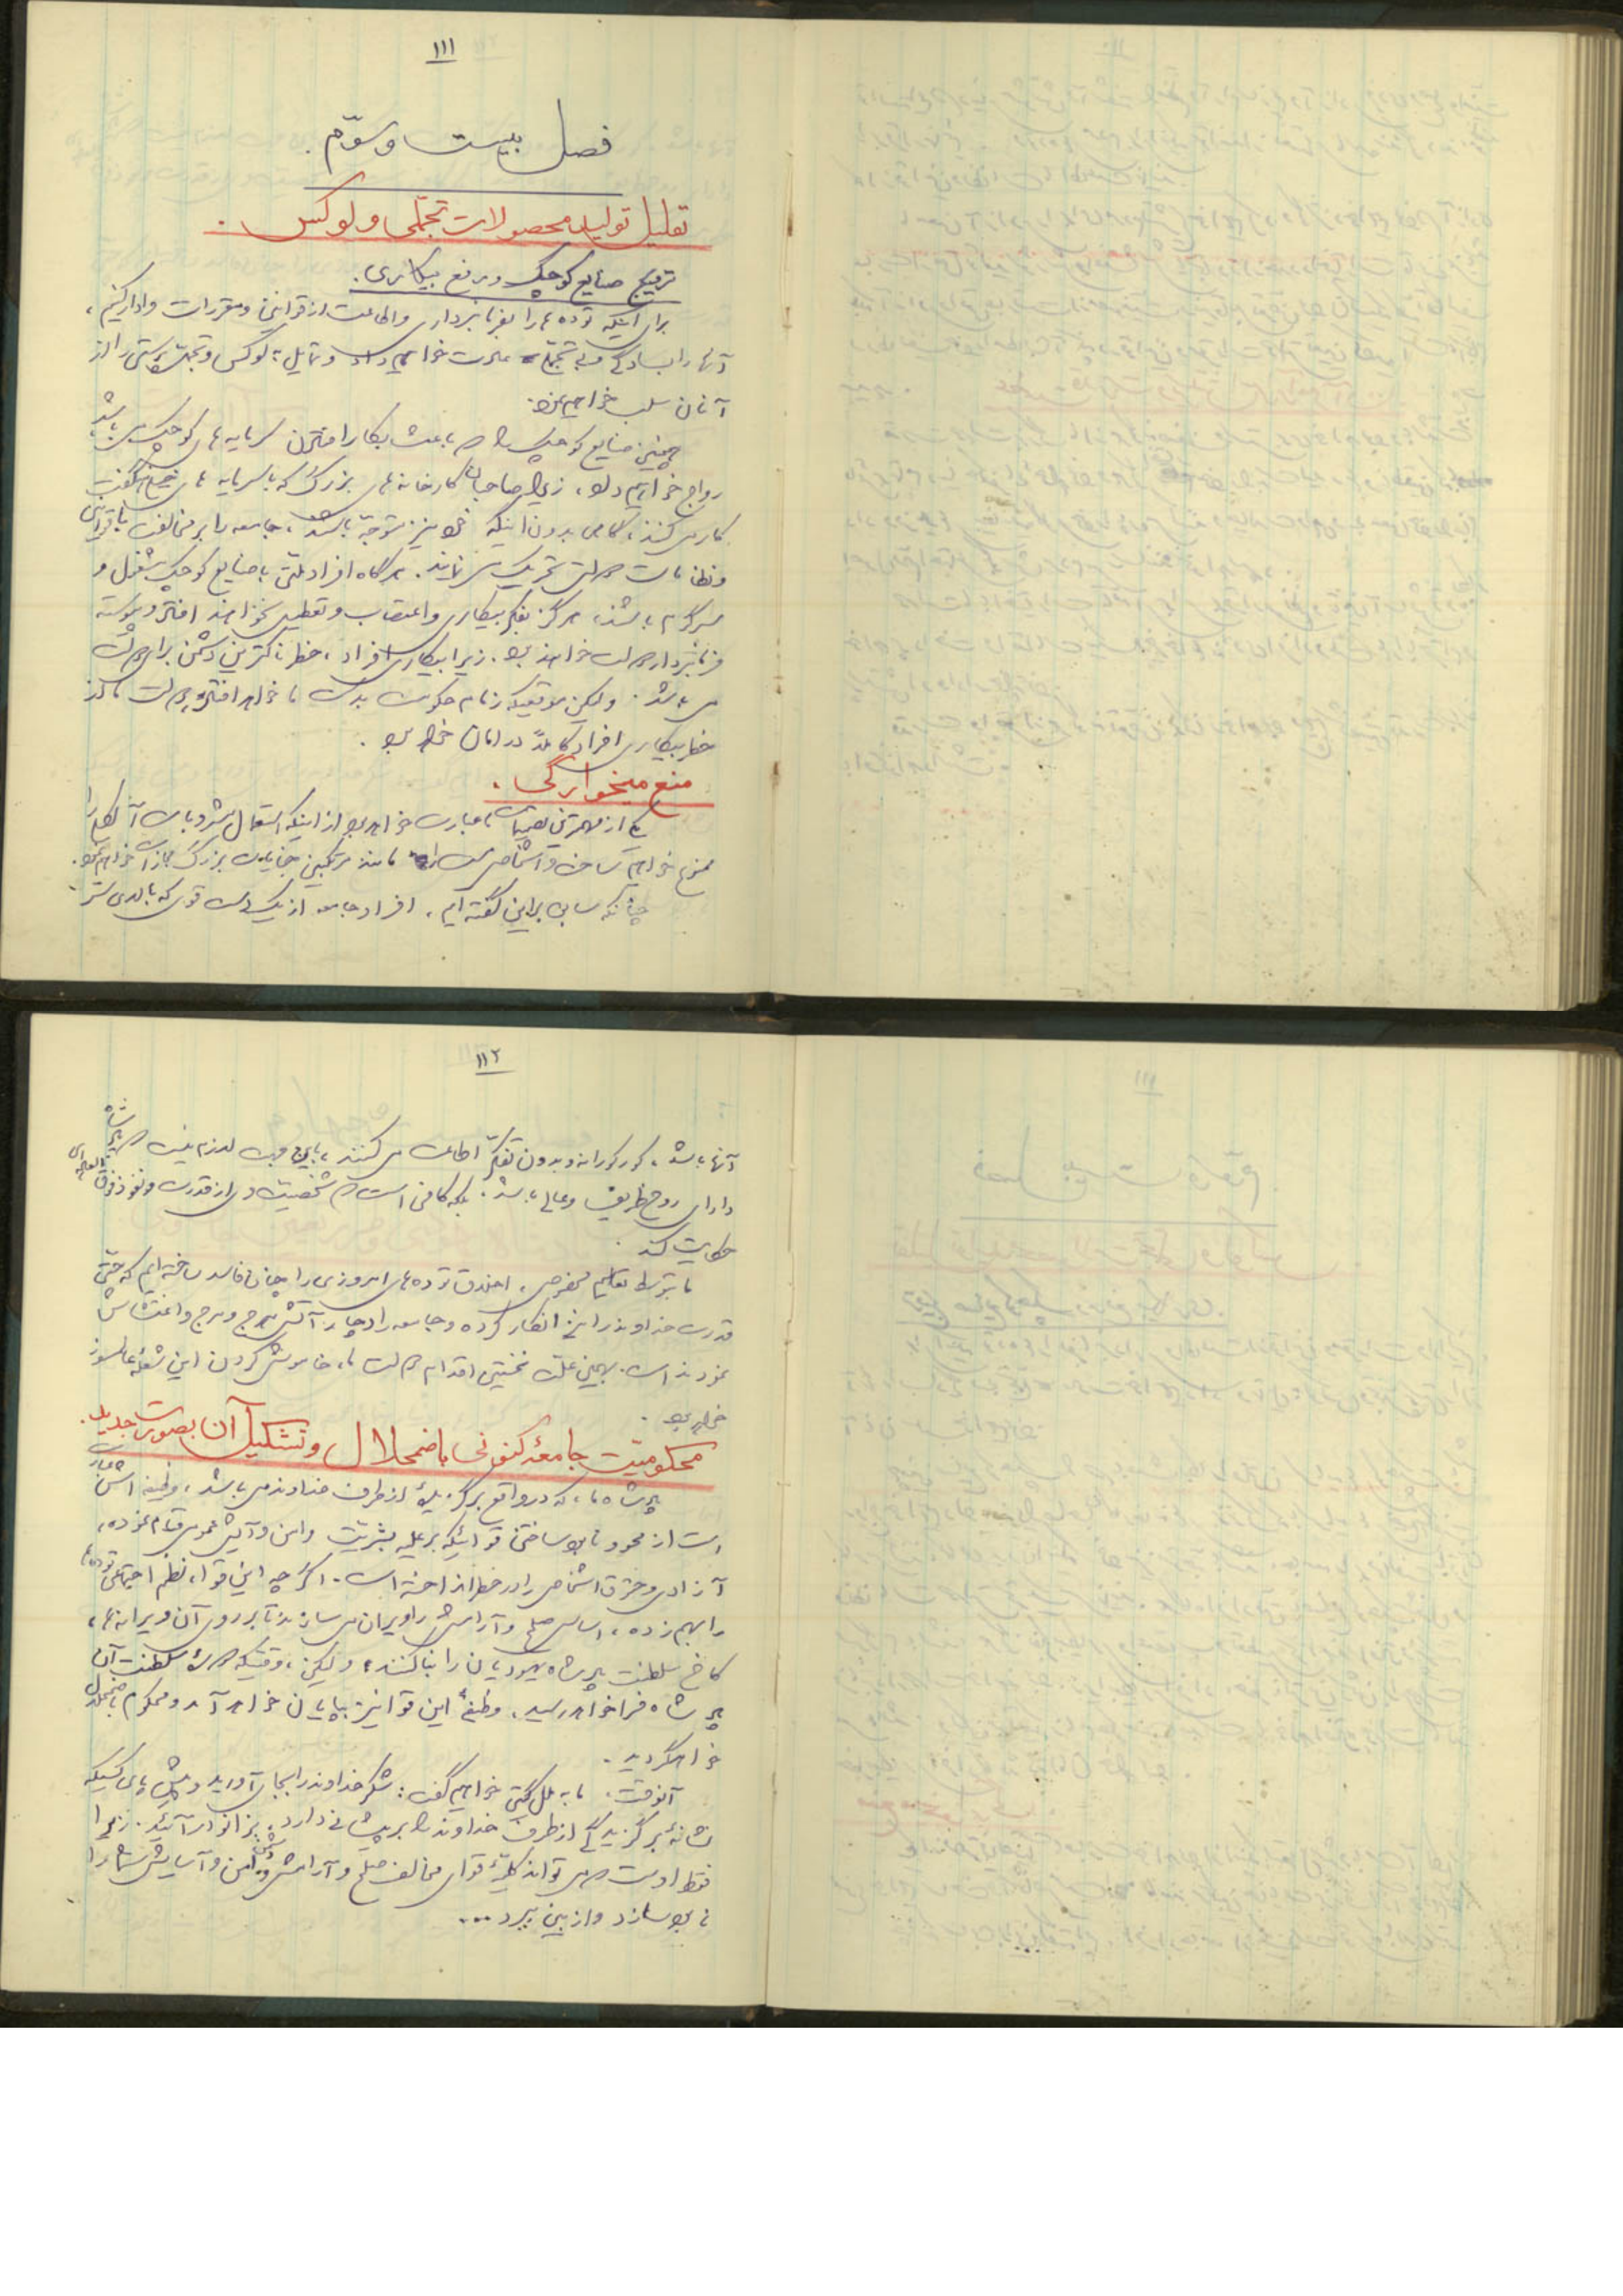 ۱۱۱
فصل بیست و سوّم.
تقلیل تولید محصولات تجمّلی و لوکس.
ترویج صنایع کوچک و رفع بیکاری.
برای اینکه توده ها را بفرمانبرداری و اطاعت از قوانین و مقررات وادار کنیم،
آنها را بسادگی و بی تجمّلی عادت خواهیم داد و تمایل به لوکس و تجمّل پرستی را از
آنان سلب خواهیم نمود.
همچنین صنایع کوچک را که باعث بکار افتادن سرمایه های کوچک می باشد
رواج خواهیم داد، زیرا صاحبان کارخانه های بزرگ که با سرمایه های هنگفت
کار می کنند، گاهی بدون اینکه خود نیز متوجّه باشند، جامعه را بر مخالفت با قوانین
و نظامات دولتی تحریک می نمایند. هرگاه افراد ملّتی با صنایع کوچک مشغول و
سرگرم باشند، هرگز بفکر بیکاری و اعتصاب و تعطیل نخواهند افتاد و پیوسته
فرمانبردار دولت خواهند بود. زیرا بیکاری افراد، خطرناکترین دشمن برای دولت
می باشد. ولیکن موقعیکه زمام حکومت بدست ما خواهد افتاد، دولت ما از
خطر بیکاری افراد کاملاً در امان خواهد بود.
منع میخوارگی.
یکی از مهمترین تصمیمات ما عبارت خواهد بود از اینکه استعمال مشروبات الکلی را
ممنوع خواهیم ساخت و اشخاص مست را مانند مرتکبین جنایات بزرگ مجازات خواهیم نمود.
چنانکه سابق براین گفته ایم، افراد جامعه از یک دست قوی که بالای سر
۱۱۲
آنها باشد، کورکورانه و بدون تفکّر اطاعت می کنند، باین جهت لازم نیست که پادشاه
دارای روح ظریف و عالی باشد. بلکه کافی است که شخصیت وی از قدرت و نفوذ فوق العاده ای
حکایت کند.
ما بتوسط تعالیم مخصوص، اخلاق توده های امروزی را چنان فاسد ساخته ایم که حتّی
قدرت خداوند را نیز انکار کرده و جامعه را دچار آتش هرج و مرج و اغتشاش
نموده است. بهمین علّت نخستین اقدام دولت ما، خاموش کردن این شعلهٔ عالمسوز
خواهد بود.
محکومیّت جامعهٔ کنونی باضمحلال و تشکیل آن بصورت جدید.
پادشاه ما، که در واقع برگزیدهٔ از طرف خداوند می باشد، وظیفه اش عبارت
است از محو و نابود ساختن قوائیکه بر علیه بشریّت و امن و آسایش عمومی قیام نموده،
آزادی و حقوق اشخاص را در خطر انداخته است. اگرچه این قوا، نظم اجتماعی توده ها
را بهم زده، اساس صلح و آرامش را ویران می سازند تا بر روی آن ویرانه ها،
کاخ سلطنت پادشاه یهودیان را بنا کنند؛ ولیکن، وقتیکه دورهٔ سلطنت آن
پادشاه فرا خواهد رسید، وظیفهٔ این قوا نیز بپایان خواهد آمد و محکوم باضمحلال
خواهد گردید.
آنوقت، ما به ملل گیتی خواهیم گفت: شکر خداوند را بجای آورید و پیش پای کسیکه
نشانهٔ برگزیدگی از طرف خداوند را بر پیشانی دارد، بزانو در آئید. زیرا
فقط اوست که می تواند کلیّهٔ قوای مخالف صلح و آرامش و دشمن امن و آسایش شما را
نابود سازد و از بین ببرد...